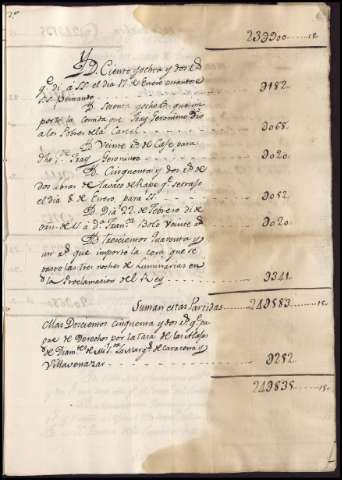 239900....12.
Y
D. Ciento y ochenta y dos r.s d
q.e di á SS. el dia 17. de Enero
0182.
D. Sesenta y ocho r.s que im-
porto la comida que Fray Geronimo Dio
a los Pobres de la Carcel
0068.
D. Veinte r.s de Cafe para
dho. Fray Geronimo
0020.
D. Cinquenta y dos r.s de
dos libras de Tavaco de Rape q.e se trajo
el dia 8. de Enero para SS.
0052.
D. Dia 22. de Febrero di de
orn. de SS. a D.n Fran.co Bolo Veinte r.s
0020.
D. Trescientos quarenta y
un r.s que importo la cera que se
en las tres noches de Luminarias en
la Proclamacion del Rey
0341.
Suman estas Partidas
240583....12.
Mas Doscientos cinquenta y dos r.s q.e pa-
gue de Derechos por la de las
de de la Marq.a de Caracena y
Villavenazar
0252.
240835....15.